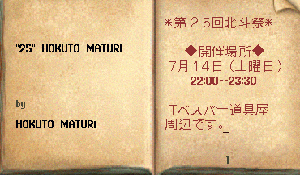 "25" HOKUTO MATURI
by
HOKUTO MATURI
*第25回北斗祭*
◆開催場所◆
7月14日（土曜日）
22:00--23:30
Tベスパー道具屋
周辺です。
1